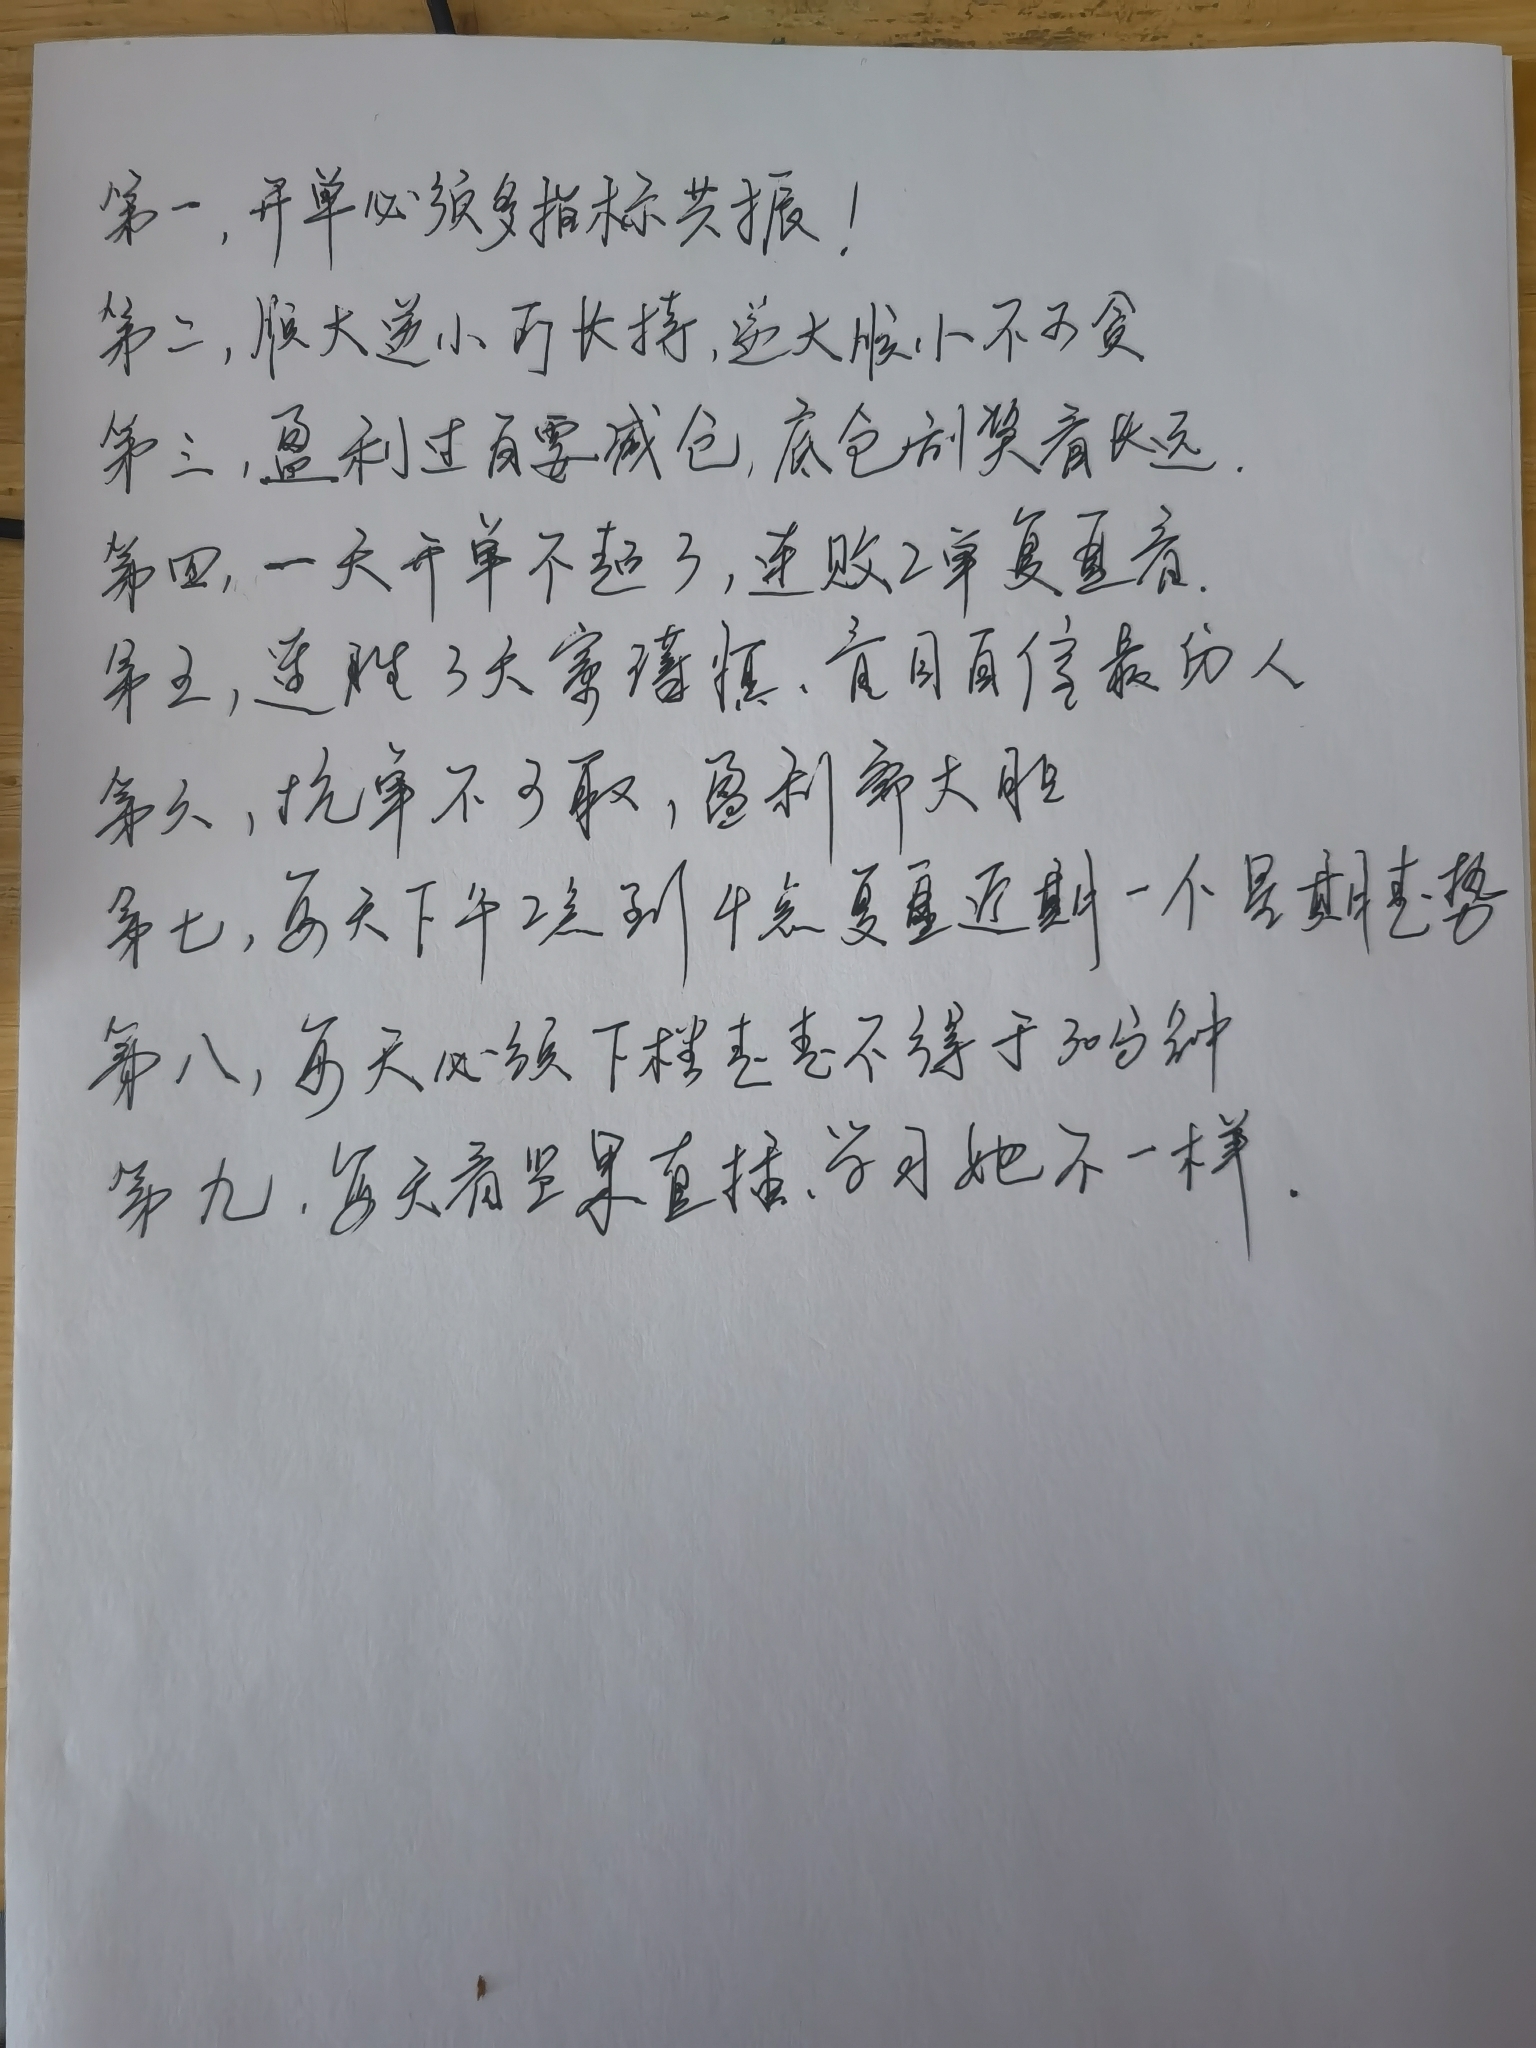 第一,开单必须多指标共振!
第二,顺大逆小可长持,逆大顺小不可贪
第三,盈利过百要减仓,底仓刮奖看长远.
第四,一天开单不超3,连败2单复盘看.
第五,连胜3天需谨慎、盲目自信最伤人
第六,抗单不可取,盈利需大胆
第七,每天下午2点到4点复盘近期一个星期走势
第八,每天必须下楼走走不得于30分钟
第九、每天看坚果直播、学习她不一样.